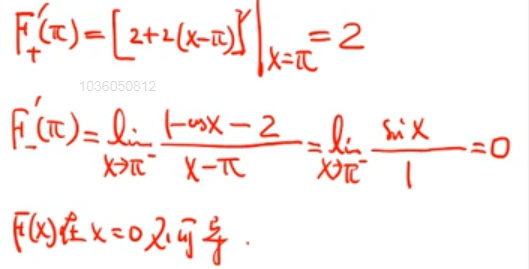 F₊′(π) = [2+2(x-π)]′|ₓ₌π = 2
1036050812
F₋′(π) = lim x→π⁻ (1-cosx-2)/(x-π) = lim x→π⁻ sinx/1 = 0
F(x)在x=0不可导.